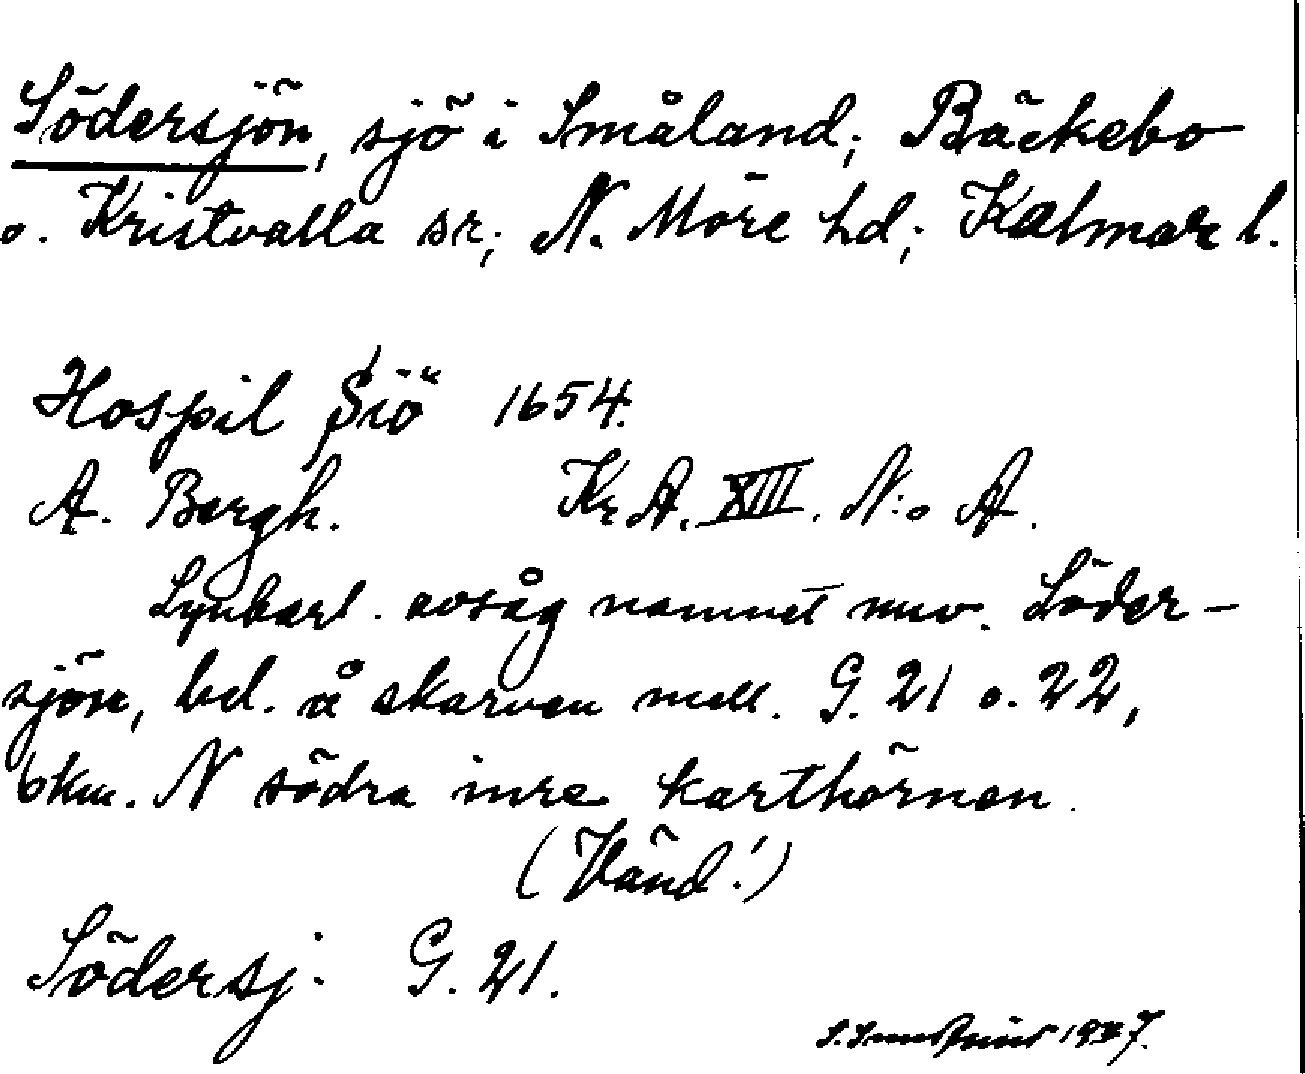 Södersjön, sjö i Småland; Bäckebo
o. Kristvalla sr; N. Möre hd; Kalmar l.
Hospil Siö 1654.
A. Bergh. KrA. XIII. N:o A.
avsåg namnet nuv. Söder-
sjön, bel. å skarven mell. G. 21 o. 22,
6km. N södra inre karthörnen.
(Vänd!)
Södersj: G. 21.